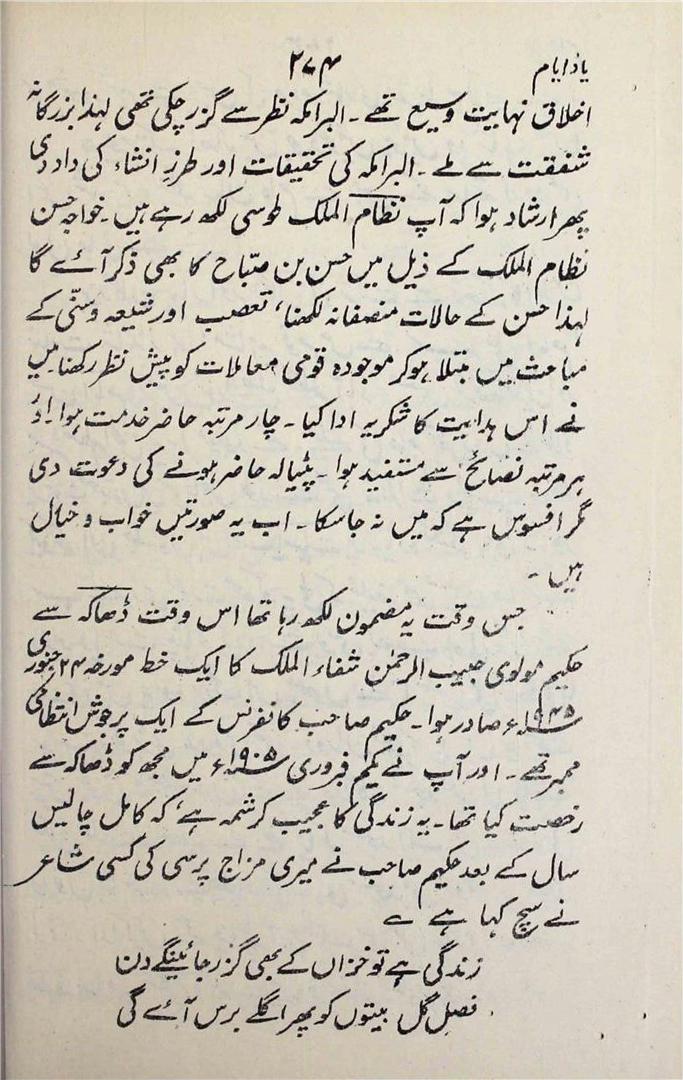 یاد ایام ۲۷۴
اخلاق نہایت وسیع تھے۔ البرامکہ نظر سے گزر چکی تھی لہذا بزرگانہ
شفقت سے ملے۔ البرامکہ کی تحقیقات اور طرزِ انشاء کی داد دی
پھر ارشاد ہوا کہ آپ نظام الملک طوسی لکھ رہے ہیں۔ خواجہ حسن
نظام الملک کے ذیل میں حسن بن صبّاح کا بھی ذکر آئے گا
لہذا حسن کے حالات منصفانہ لکھنا، تعصب اور شیعہ و سنّی کے
مباحث میں مبتلا ہوکر موجودہ قومی معاملات کو پیش نظر رکھنا۔ میں
نے اس ہدایت کا شکریہ ادا کیا۔ چار مرتبہ حاضر خدمت ہوا۔ اور
ہر مرتبہ نصائح سے مستفید ہوا۔ پٹیالہ حاضر ہونے کی دعوت دی
مگر افسوس ہے کہ میں نہ جا سکا۔ اب یہ صورتیں خواب و خیال
ہیں۔
جس وقت یہ مضمون لکھ رہا تھا اس وقت ڈھاکہ سے
حکیم مولوی حبیب الرحمٰن شفاء الملک کا ایک خط مورخہ ۲۴ جنوری
۱۹۴۵ء صادر ہوا۔ حکیم صاحب کانفرنس کے ایک پرجوش انتظامی
ممبر تھے۔ اور آپ نے یکم فروری ۱۹۰۵ء میں مجھ کو ڈھاکہ سے
رخصت کیا تھا۔ یہ زندگی کا عجیب کرشمہ ہے، کہ کامل چالیس
سال کے بعد حکیم صاحب نے میری مزاج پرسی کی کسی شاعر
نے سچ کہا ہے ؎
زندگی ہے تو خزاں کے بھی گزر جائینگے دن
فصلِ گل بیتوں کو پھر اگلے برس آئے گی